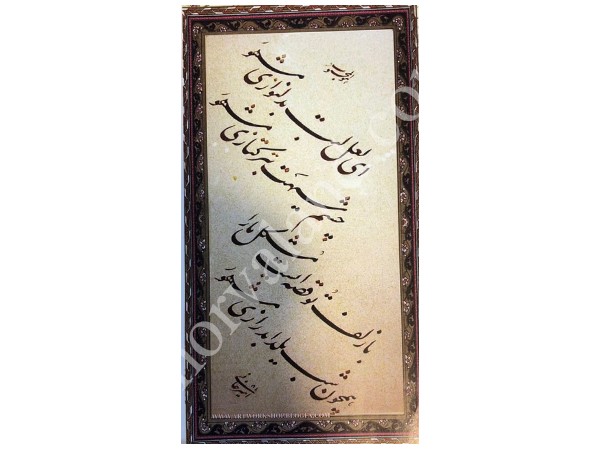 هوالمحبوب
ای لعل لبت بدلنوازی مشهور
چشم سیهت بترکتازی مشهور
با زلف تو قصه ایست مشکل ما را
همچون شب یلدا بدرازی مشهور
WWW.ARTWORKSHOP.BLOGFA.COM